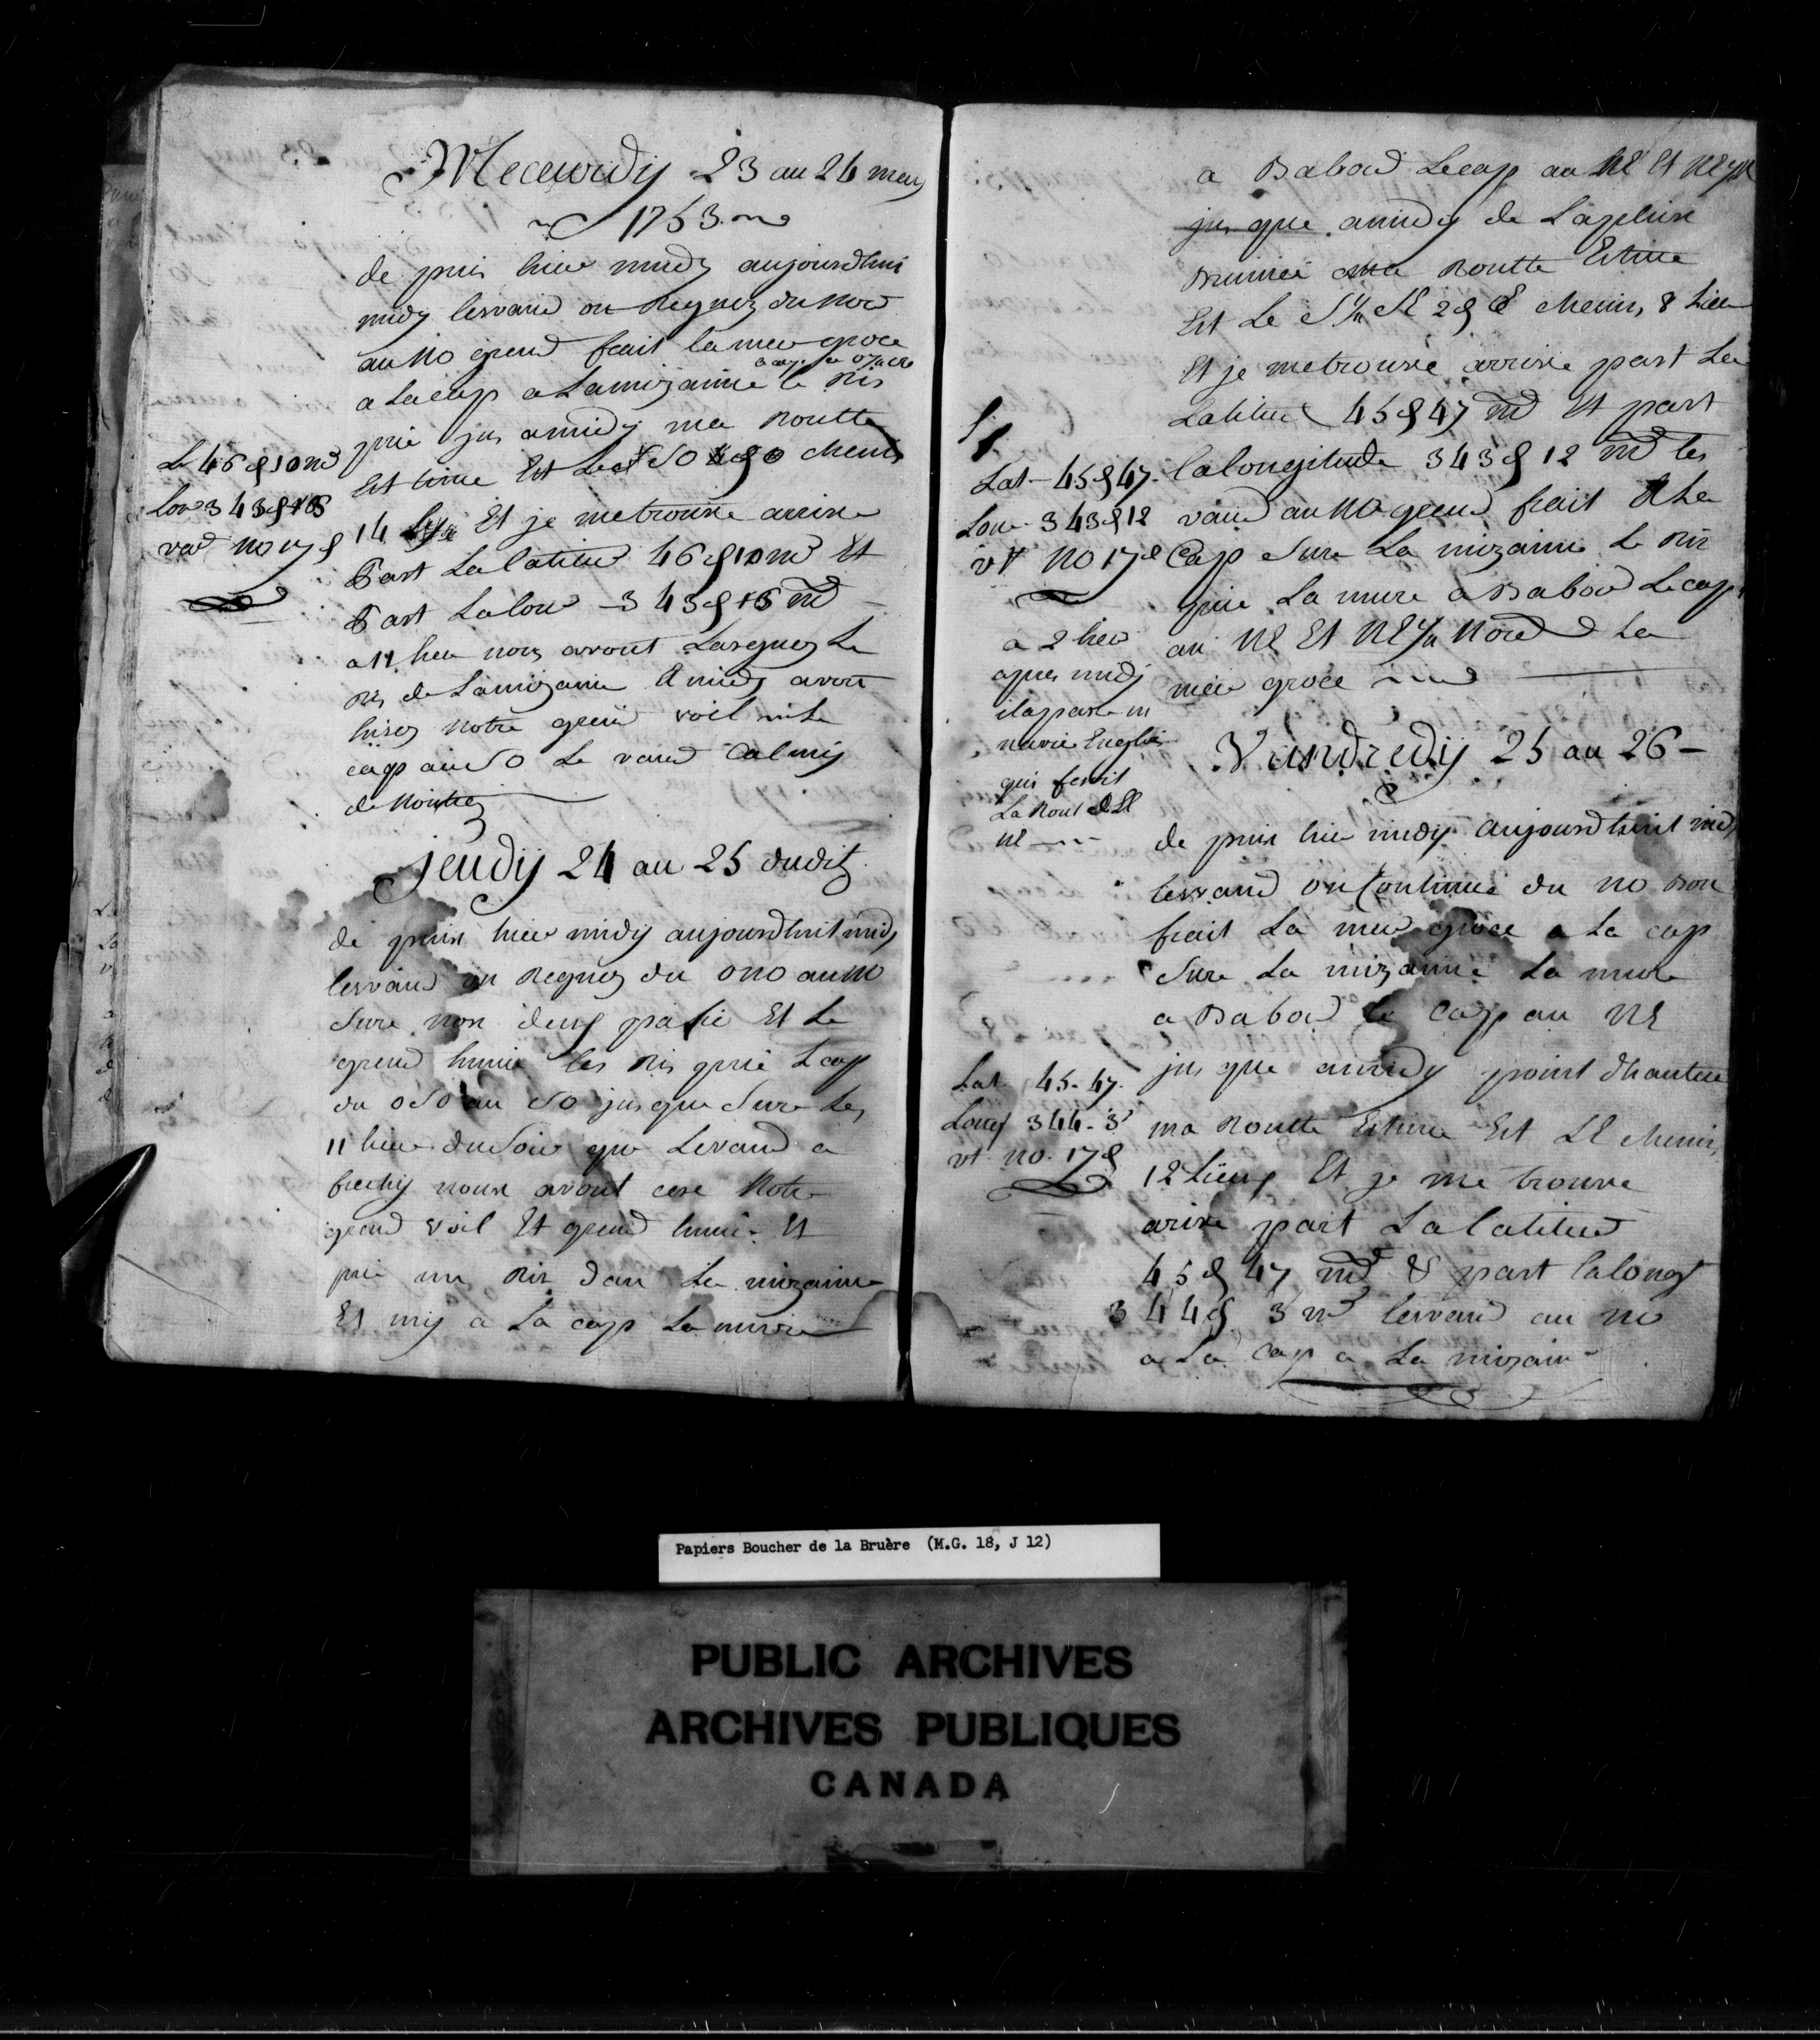 Meceurdy 23 au 24 may
1753
de puis hier midy aujourdhui
midy lesvand on Regnez du Nord
au NO grend frait la mer groce
a la cap a La mizaine le Ris
prie jus a midy ma Routte
Est time Est Le SO chemis
14 Et je me trouve arive
Part La latitud 46 d 10 md Et
Part La lon 343 d md
a 11 heu nous avont Larguez Le
Ris de La mizaine A midy avont
hisez Notre grend voil mi Le
cap au SO Le vand Calmis
de Nontrez
Le 46 d 10 md
Lon 343 d
var NO 17 d
jeudij 24 au 25 dudit
de puis hier midij aujourdhuit midy
lesvand on Regnez du ONO au NO
Sure non deux pafie Et Le
grend hunie les Ris prie L cap
du OSO au SO jusque Sure Les
11 heur du Soir que Levand a
frechy nous avont cere Notre
grend voil Et grend hunie Et
prie un Ris dan La mizaine
Et mis a La cap La mure
a Babord Le cap au NE Et NE
jus que a midy de La pluie
Brumée ma Routte Estime
Est Le S SE 2 d E chemin 8 Lieu
Et je me trouve arrive part La
Latitud 45 d 47 md Et part
la longitude 343 d 12 md les
vand au NO grend frait A La
Cap Sure La mizaine Le Ris
prie La mure a Babord Le cap
au NE Et NE Nord La
mer groce
Lat 45 d 47
Lon 343 d 12
vt NO 17 d
a 2 heu
apres midy
il a parse un
navire Englois
qui fesoit
La Rout
NE
Vandredij 25 au 26
de puis hier midy aujourdhuit midy
lesvand on Continue du NO Bon
frait La mer groce a La cap
Sure La mizaine La mure
a Babord le Cap au NE
jus que a midy point dhauteur
ma Routte Estime Est SE chemin
12 Lieux Et je me trouve
arive part La latitud
45 d 47 md & part la longt
344 d 3 md lesvand au NO
a La Cap a La mizaine
Lat 45 - 47
Long 344 - 3
vt NO 17 d
Papiers Boucher de la Bruère (M.G. 18, J 12)
PUBLIC ARCHIVES
ARCHIVES PUBLIQUES
CANADA